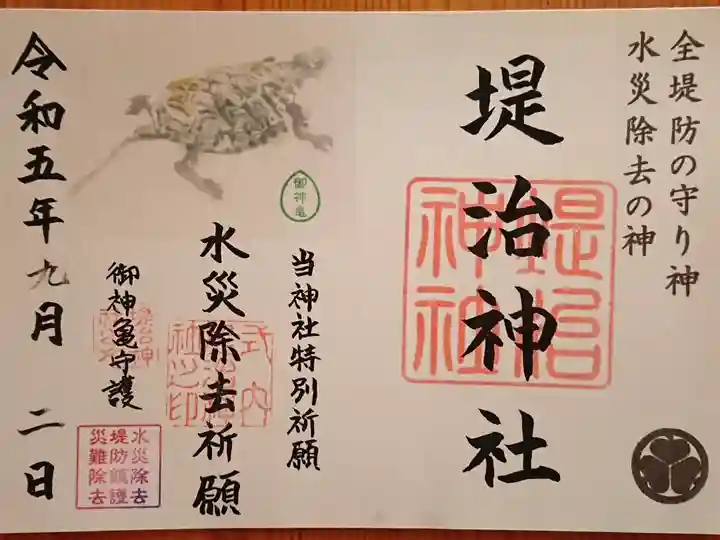 全堤防の守り神
水災除去の神
堤治神社
堤治
神社
当神社特別祈願
水災除去祈願
式内
社之印
御神亀
御神亀守護
水災除去
堤防鎮護
災難除去
令和五年九月二日